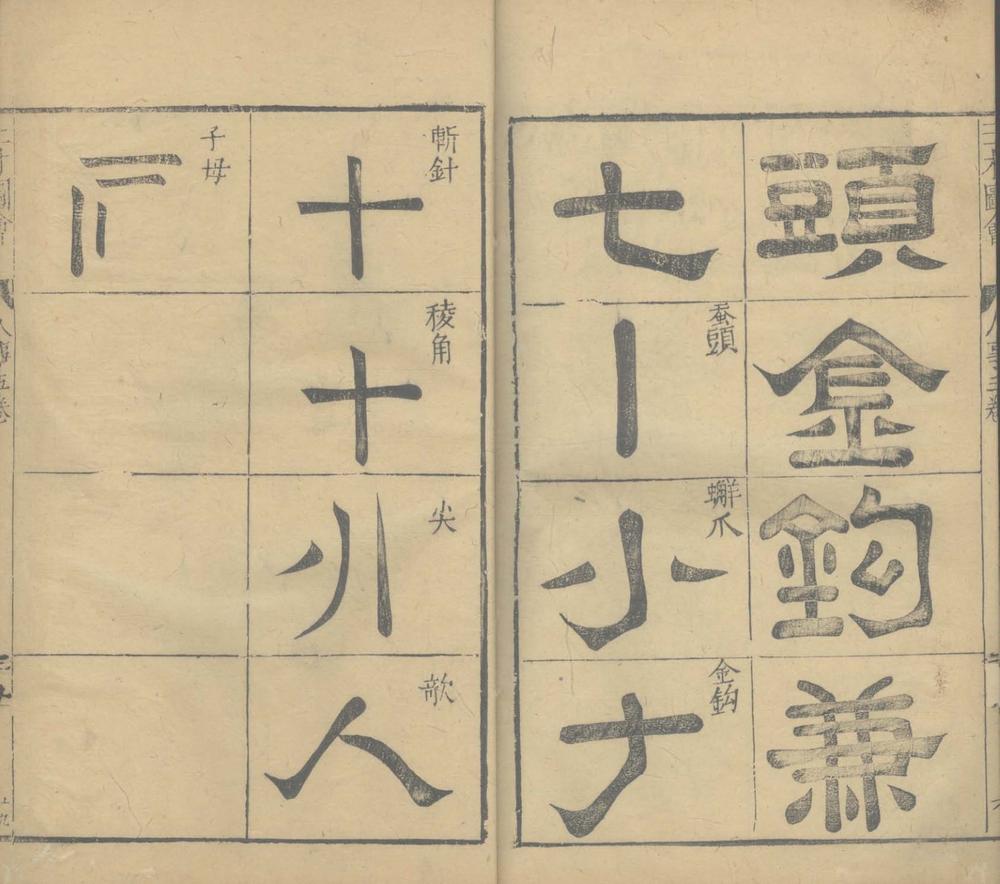 三才圖會
人事五卷
頭金鈎兼
七
蚕頭
丨
蠏爪
小
金鈎
𠂇
斬針
十
稜角
十
尖
敧
人
子母
三才圖會
人事五卷
十九